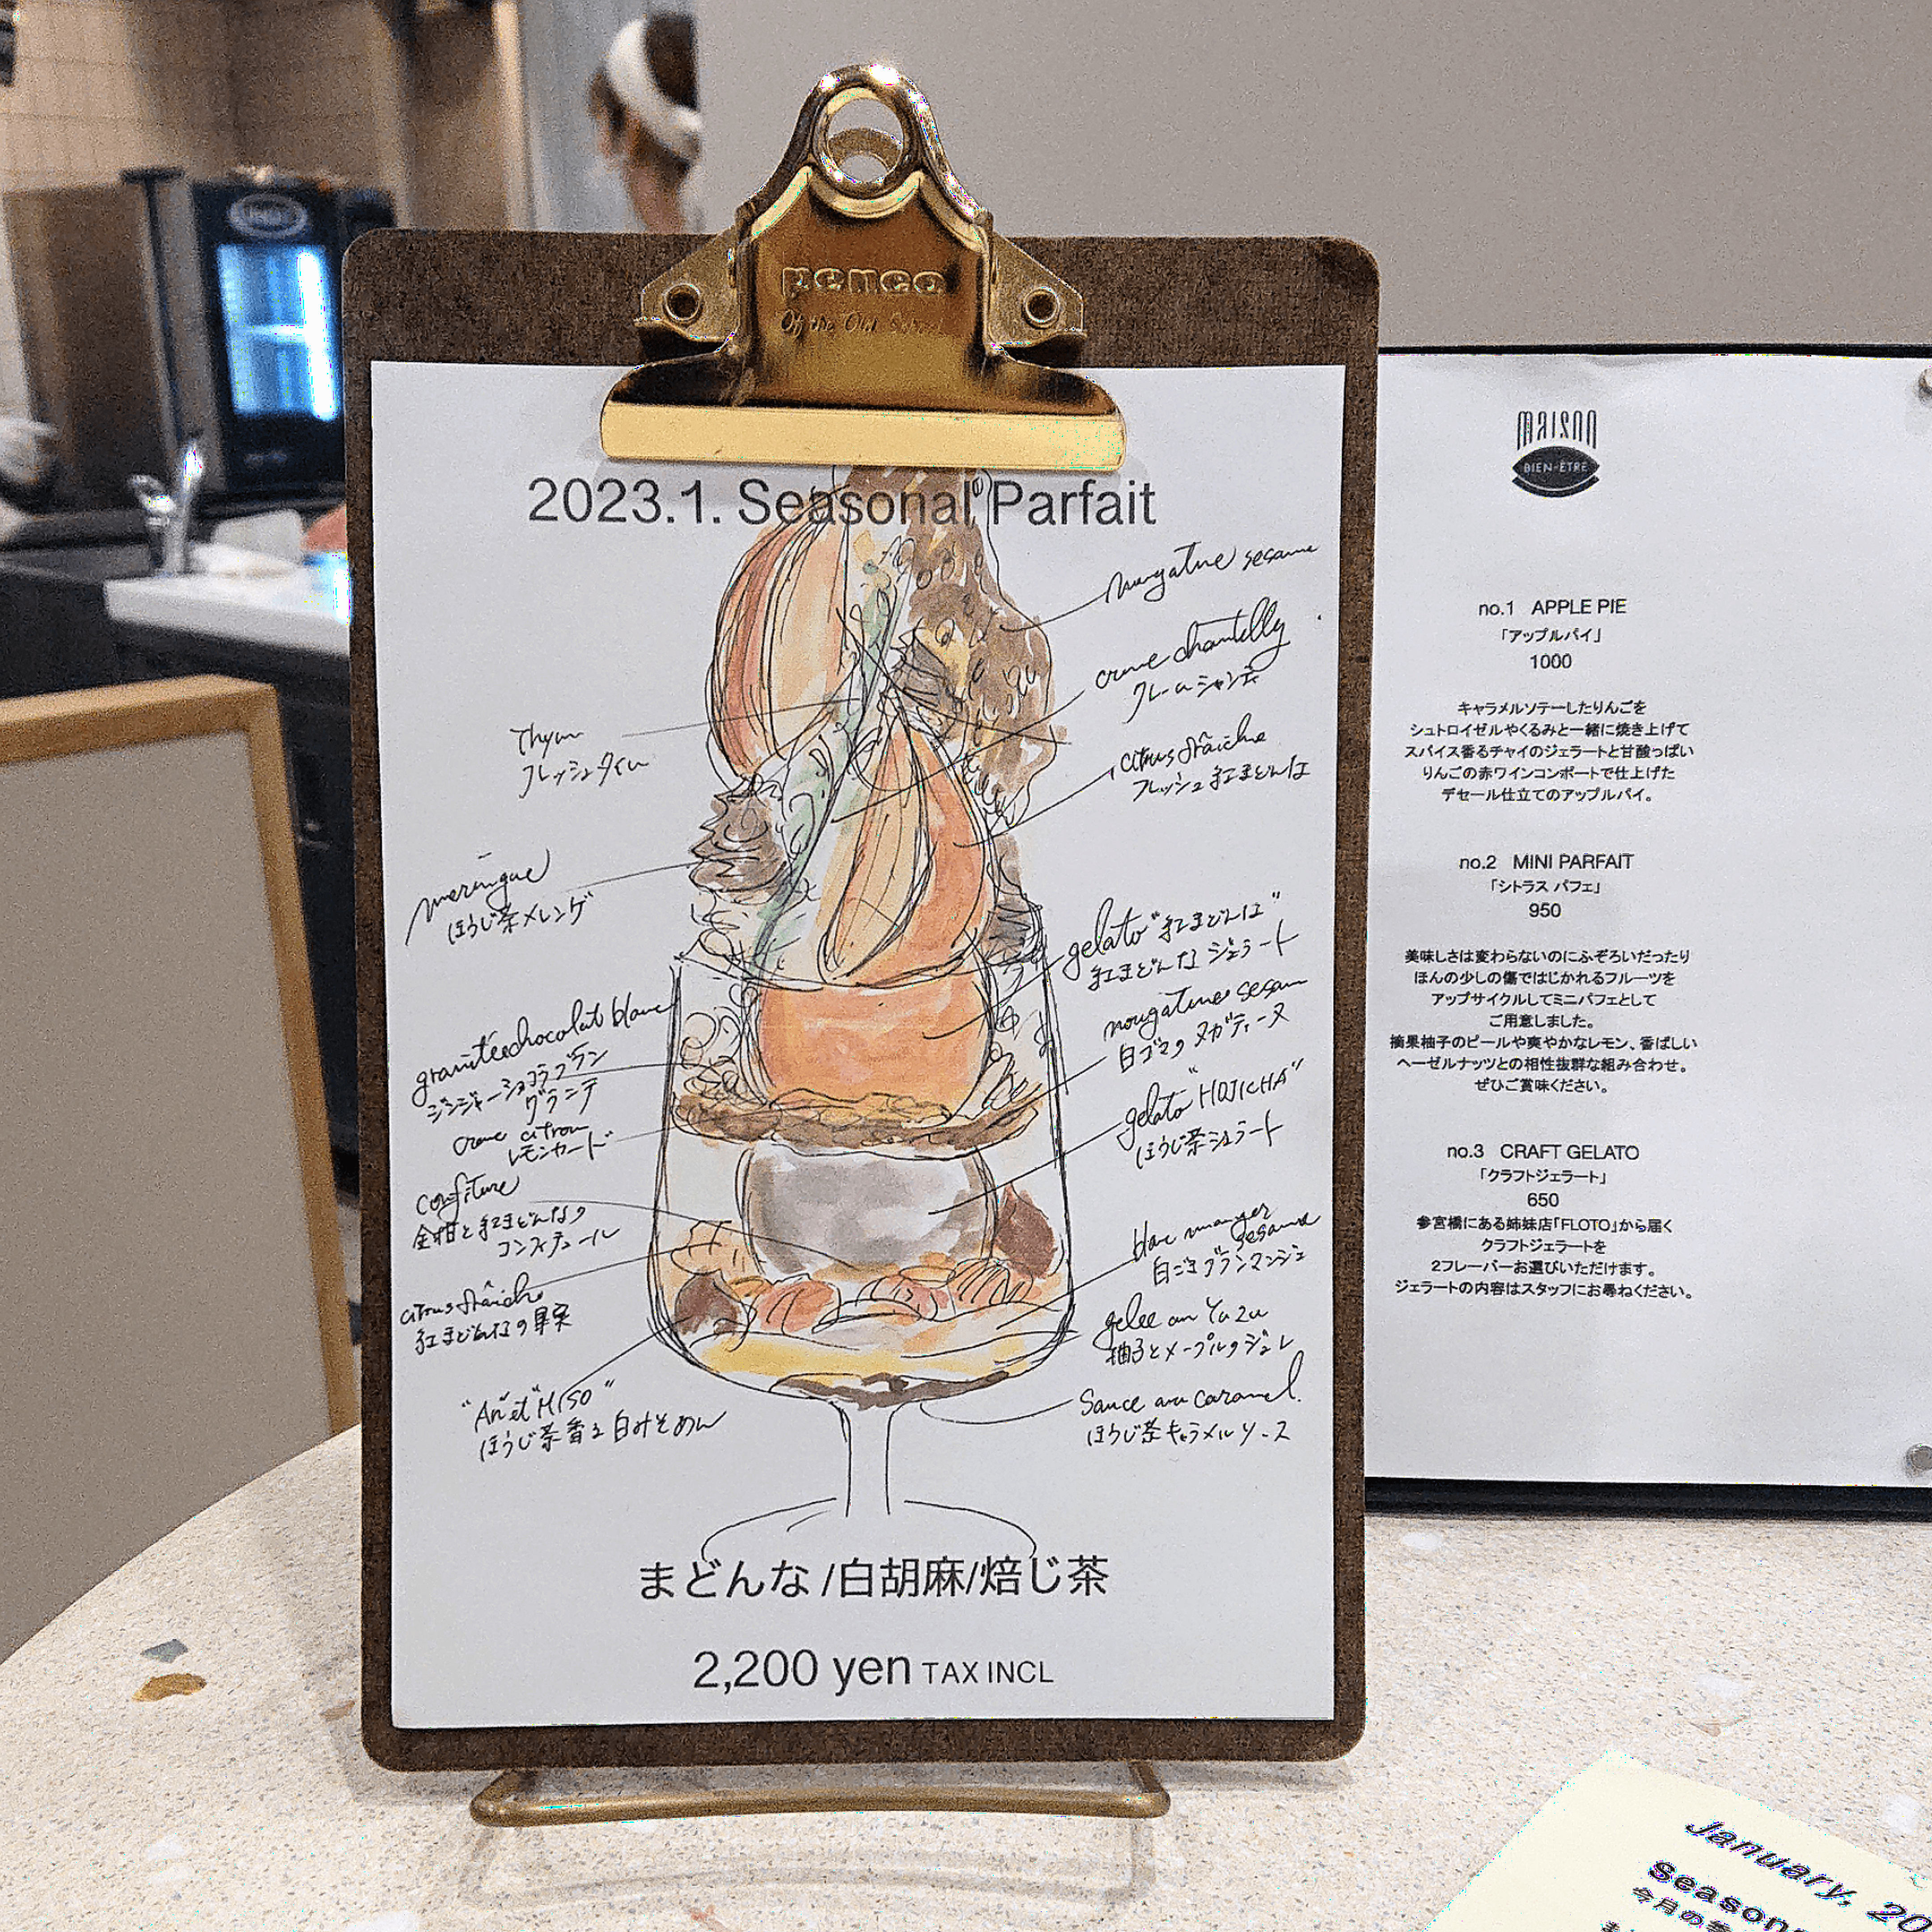 penco
Of the Old School
2023.1. Seasonal Parfait
nougatine sesame
creme chantilly
クレームシャンティ
Thym
フレッシュタイム
citrus fraîche
フレッシュ紅まどんな
meringue
ほうじ茶メレンゲ
gelato "紅まどんな"
紅まどんなジェラート
granitée chocolat blanc
ジンジャーショコラブラン
グラニテ
nougatine sesam
白ゴマのヌガティーヌ
creme citron
レモンカード
gelato "HOJICHA"
ほうじ茶ジェラート
confiture
金柑と紅まどんなの
コンフィチュール
blanc manger
sesame
白ごまブランマンジェ
citrus fraîche
紅まどんなの果実
gelee au Yuzu
柚子とメープルのジュレ
"An" et "MISO"
ほうじ茶香る白みそあん
Sauce au caramel.
ほうじ茶キャラメルソース
まどんな/白胡麻/焙じ茶
2,200 yen TAX INCL
MAISON
BIEN-ÊTRE
no.1 APPLE PIE
「アップルパイ」
1000
キャラメルソテーしたりんごを
シュトロイゼルやくるみと一緒に焼き上げて
スパイス香るチャイのジェラートと甘酸っぱい
りんごの赤ワインコンポートで仕上げた
デセール仕立てのアップルパイ。
no.2 MINI PARFAIT
「シトラス パフェ」
950
美味しさは変わらないのにふぞろいだったり
ほんの少しの傷ではじかれるフルーツを
アップサイクルしてミニパフェとして
ご用意しました。
摘果柚子のピールや爽やかなレモン、香ばしい
ヘーゼルナッツとの相性抜群な組み合わせ。
ぜひご賞味ください。
no.3 CRAFT GELATO
「クラフトジェラート」
650
参宮橋にある姉妹店「FLOTO」から届く
クラフトジェラートを
2フレーバーお選びいただけます。
ジェラートの内容はスタッフにお尋ねください。
January, 20
season
今月の